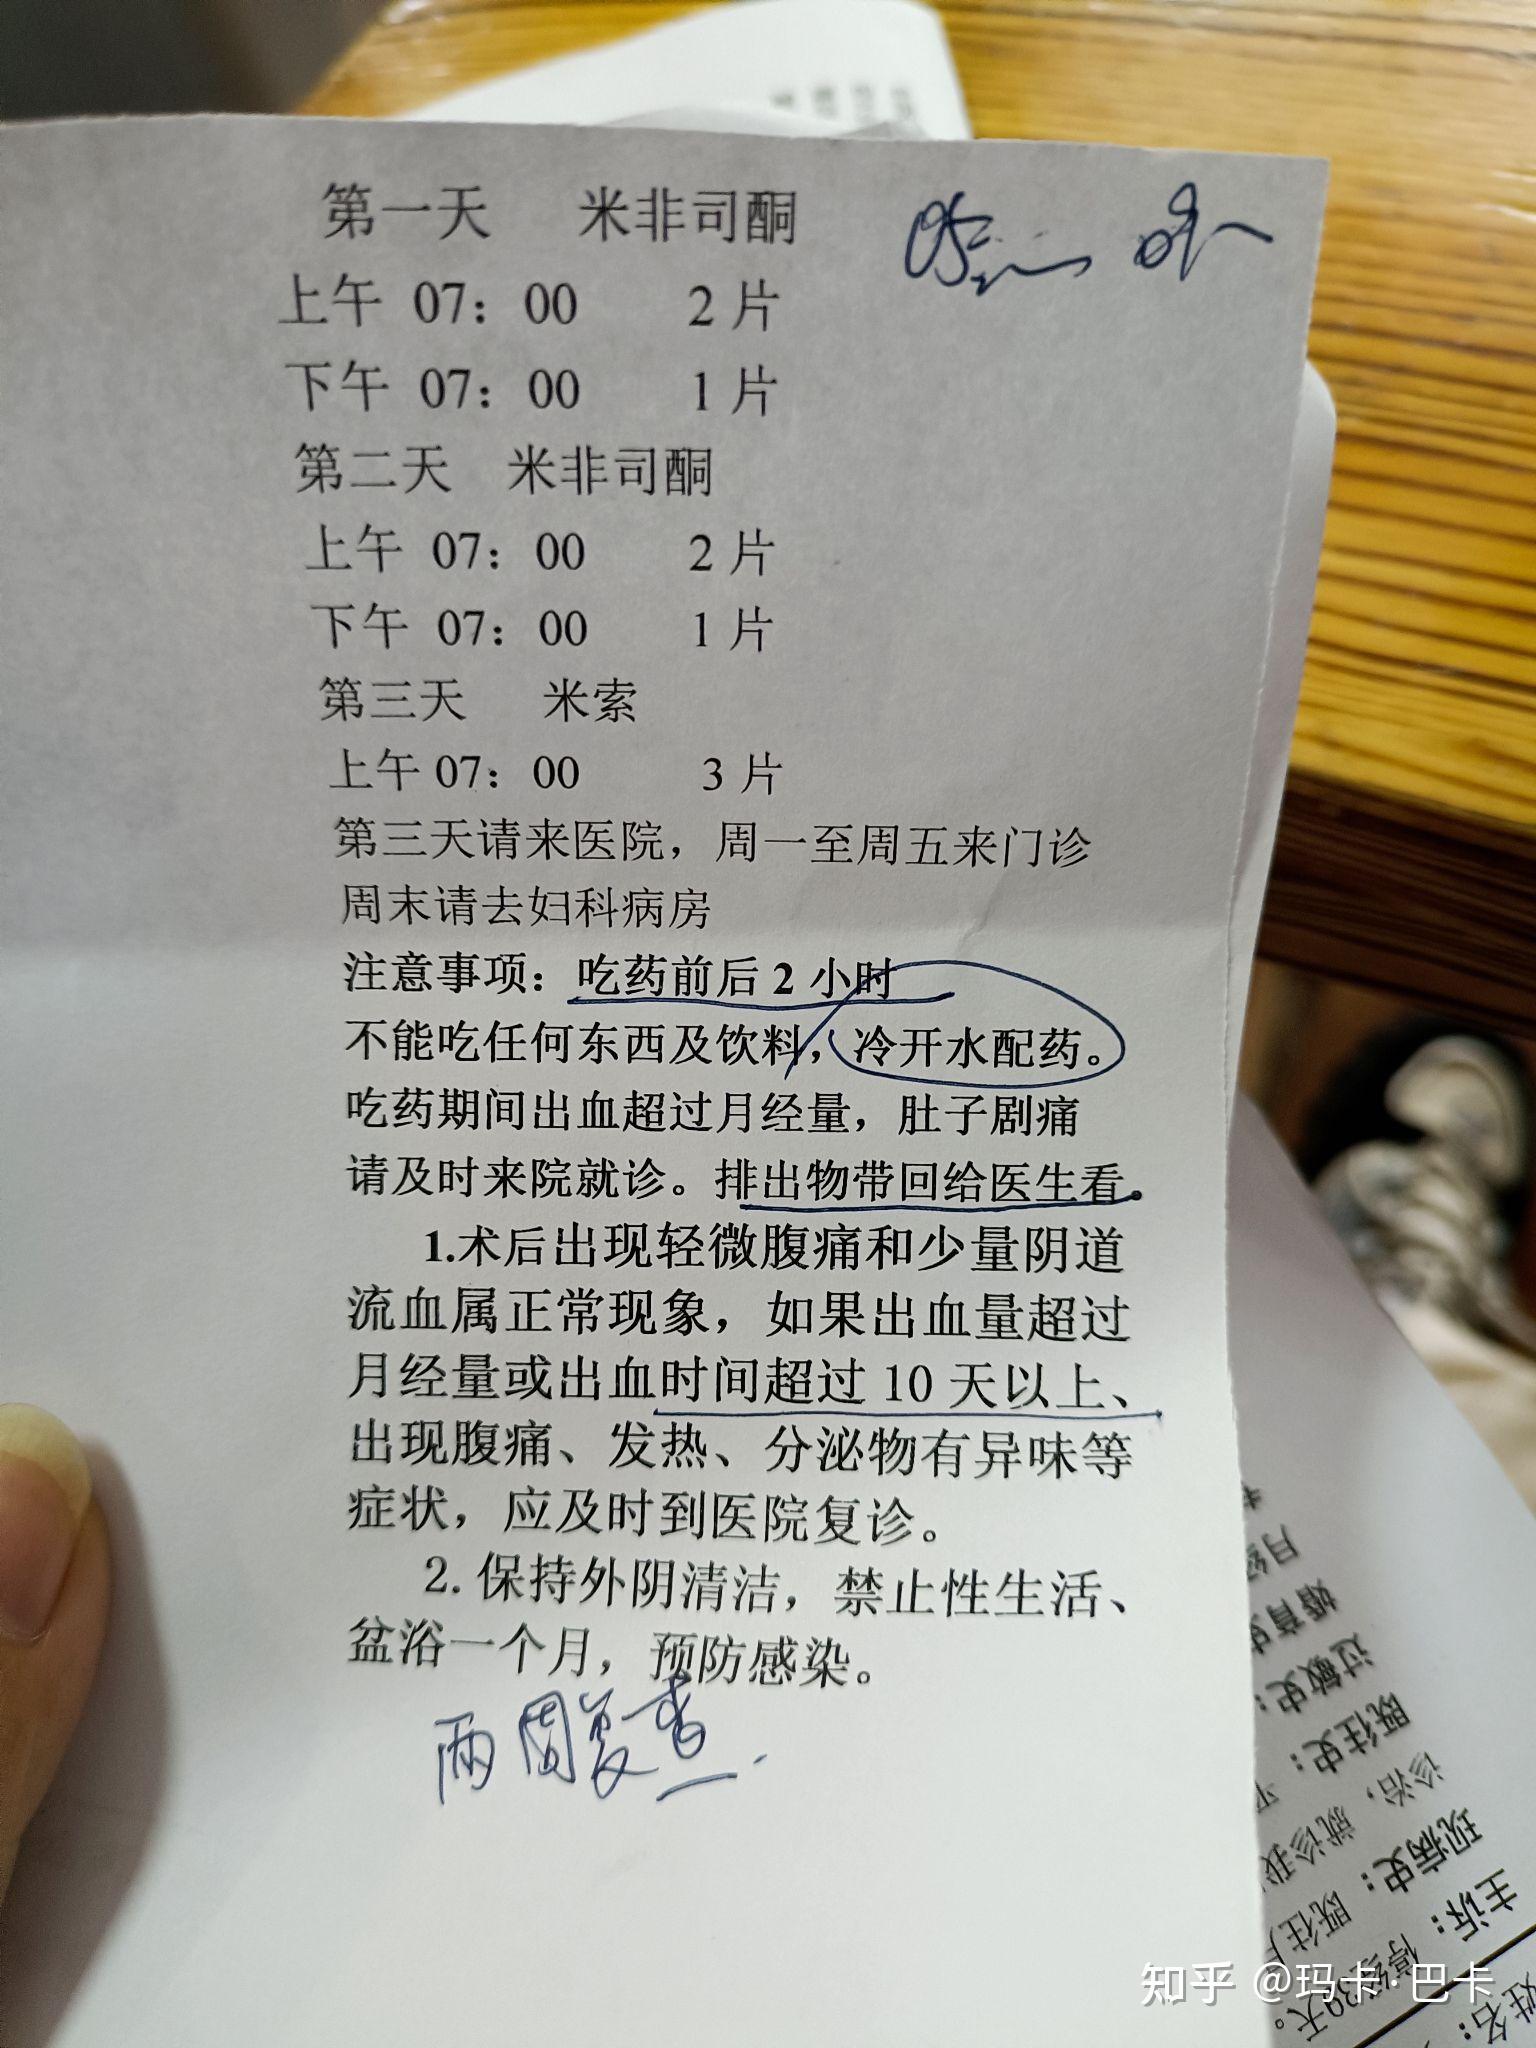 第一天 米非司酮
上午 07：00 2 片
下午 07：00 1 片
第二天 米非司酮
上午 07：00 2 片
下午 07：00 1 片
第三天 米索
上午 07：00 3 片
第三天请来医院，周一至周五来门诊
周末请去妇科病房
注意事项：吃药前后 2 小时
不能吃任何东西及饮料，冷开水配药。
吃药期间出血超过月经量，肚子剧痛
请及时来院就诊。排出物带回给医生看。
1.术后出现轻微腹痛和少量阴道
流血属正常现象，如果出血量超过
月经量或出血时间超过 10 天以上、
出现腹痛、发热、分泌物有异味等
症状，应及时到医院复诊。
2. 保持外阴清洁，禁止性生活、
盆浴一个月，预防感染。
两周复查.
月经
婚育史
过敏史：
既往史：
诊治，就诊我
现病史：既往
主诉：停经39天。
姓名：
知乎 @玛卡·巴卡